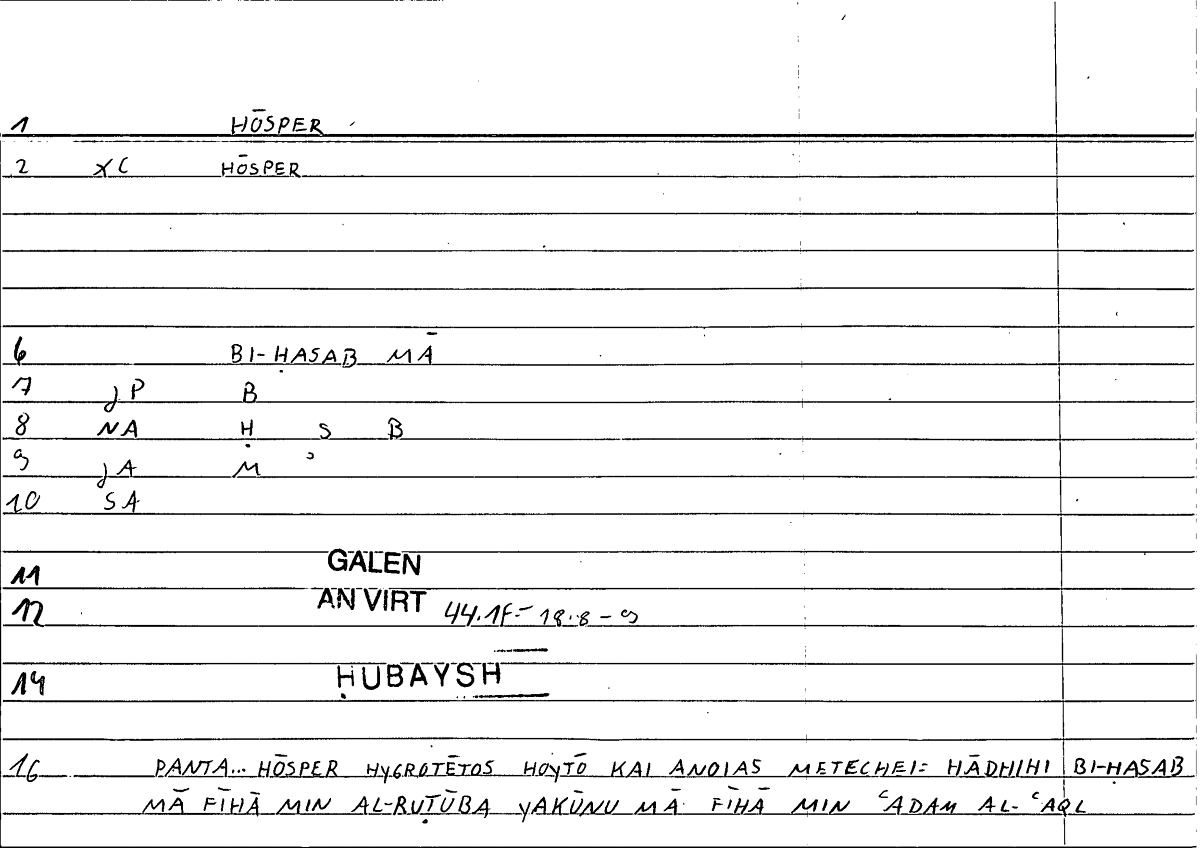 1 HŌSPER
2 XC HŌSPER
6 BI-ḤASAB MĀ
7 JP B
8 NA Ḥ S B
9 JA M ʾ
10 SA
11 GALEN
12 AN VIRT 44.1F = 18.8-9
14 ḤUBAYSH
16 PANTA... HŌSPER HYGROTĒTOS HOYTŌ KAI ANOIAS METECHEI= HĀDHIHI BI-ḤASAB
MĀ FĪHĀ MIN AL-RUṬŪBA YAKŪNU MĀ FĪHĀ MIN ʿADAM AL-ʿAQL